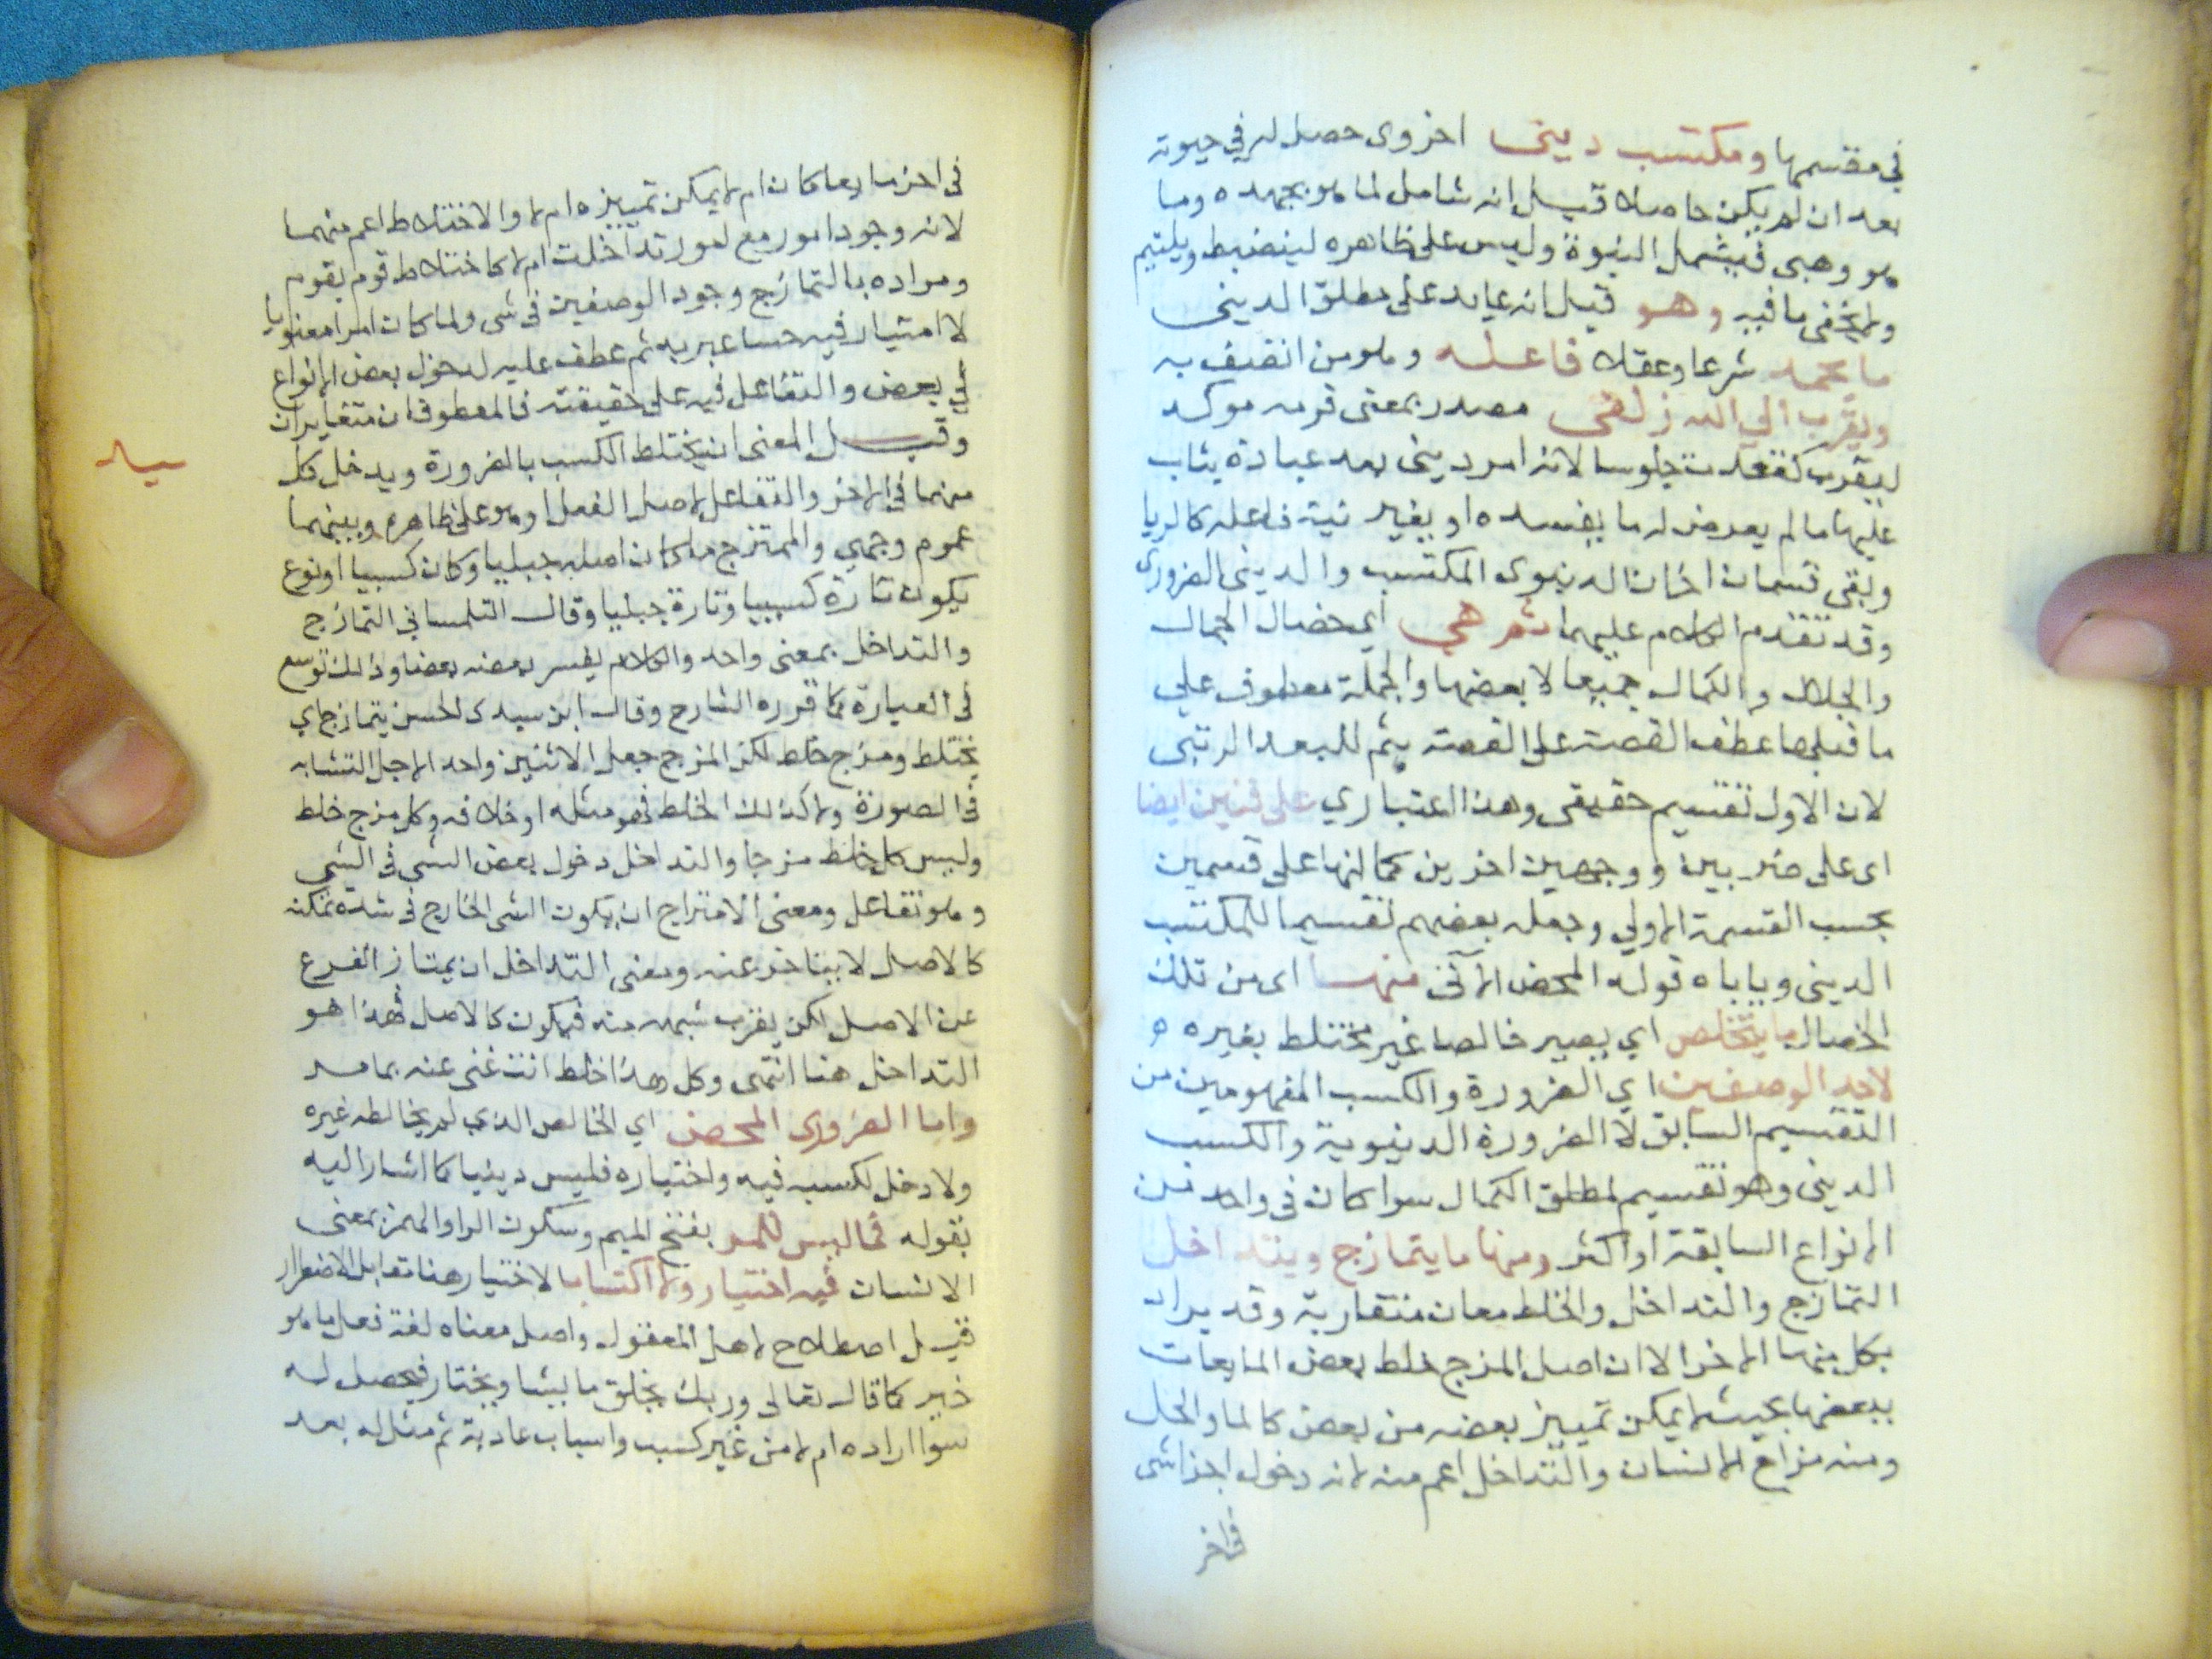 في مقسمها ومكتسب ديني اخروى حصل له في حيوته
بعد ان لم يكن حاصلا قيل انه شامل لما هو بجهده وما
هو وهبى فيشمل النبوة وليس على ظاهره لينضبط ويلتيم
ولا يخفى ما فيه وهو قيل انه عايد على مطلق الدينى
ما يحمد شرعا وعقلا فاعله وهو من اتصف به
ويقرب الى الله زلفى مصدر بمعنى قربه موكد
ليقرب كقعدت جلوسا لانه امر دينى يعد عبادة يثاب
عليها ما لم يعرض له ما يفسده او يغير نية فاعله كالريا
وبقى قسمان اخان الدنيوى المكتسب والدينى الضرورى
وقد تقدم الكلام عليهما ثم هي اي خصال الجمال
والجلال والكمال جميعا لا بعضها والجملة معطوف علي
ما قبلها عطف القصة على القصة بثم للبعد الرتبى
لان الاول تقسيم حقيقى وهذا اعتباري على فنين ايضا
اى على ضربين ووجهين اخرين كما انها على قسمين
بحسب القسمة الاولي وجعله بعضهم تقسيما للمكتسب
الدينى وياباه قوله المحض الآتى منها اى من تلك
الخصال ما يتخلص اي يصير خالصا غير مختلط بغيره ه
لاحد الوصفين اي الضرورة والكسب المفهومين من
التقسيم السابق لا الضرورة الدنيوية والكسب
الدينى وهو تقسيم لمطلق الكمال سوا كان فى واحد من
الانواع السابقة او اكثر ومنها ما يتمازج ويتداخل
التمازج والتداخل والخلط معان متقاربة وقد يراد
بكل منها الاخر الا ان اصل المزج خلط بعض المايعات
ببعضها بحيث لا يمكن تمييز بعضه من بعض كالما والخل
ومنه مزاج الانسان والتداخل اعم منه لانه دخول اجزا شى
في اخر
فى اخر مايعا كان ام لا يمكن تمييزه ام لا والاختلاط اعم منهما
لانه وجود امور مع امور تداخلت ام لا كاختلاط قوم بقوم
ومراده بالتمازج وجود الوصفين فى شى ولما كان امرا معنويا
لا امتياز فيه حسا عبر به ثم عطف عليه لدخول بعض الانواع
في بعض والتفاعل فيه على حقيقته فالمعطوفان متغايران
وقيل المعنى ان يختلط الكسب بالضرورة ويدخل كل
منهما فى الاخر والتفاعل لاصل الفعل او هو على ظاهره وبينهما
عموم وجهي والممتزج ما كان اصله جبليا وكان كسبيا او نوع
يكون تارة كسبيا وتارة جبليا وقال التلمسانى التمازج
والتداخل بمعنى واحد والكلام يفسر بعضه بعضا وذلك توسع
فى العبارة كما قرره الشارح وقال ابن سيدى الحسن يتمازج اي
يختلط ومزج خلط لكن المزج جعل الاثنين واحد الاجل التشابه
فى الصورة ولا كذلك الخلط فهو مثله او خلافه وكل مزج خلط
وليس كل خلط مزجا والتداخل دخول بعض الشى فى الشى
وهو تفاعل ومعنى الامتزاج ان يكون الشى الخارج فى شدة تمكنه
كالاصل لا يتاخر عنه ومعنى التداخل ان يمتاز الفرع
عن الاصل لكن يقرب شبهه منه فيكون كالاصل فهذا هو
التداخل هنا انتهى وكل هذا خلط انت غنى عنه بما مر
واما الضرورى المحض اي الخالص الذي لم يخالطه غيره
ولا دخل لكسب فيه واختياره فليس دينيا كما اشار اليه
بقوله فما ليس للمر بفتح الميم وسكون الرا والهمز بمعنى
الانسان فيه اختيار ولا اكتساب الاختيار هنا مقابل الاضطرار
قيل اصطلاح لاهل المعقول واصل معناه لغة فعل ما هو
خير كما قال تعالى وربك يخلق ما يشا ويختار فيحصل له
سوا اراده ام لا من غير كسب واسباب عادية ثم مثل له بعد